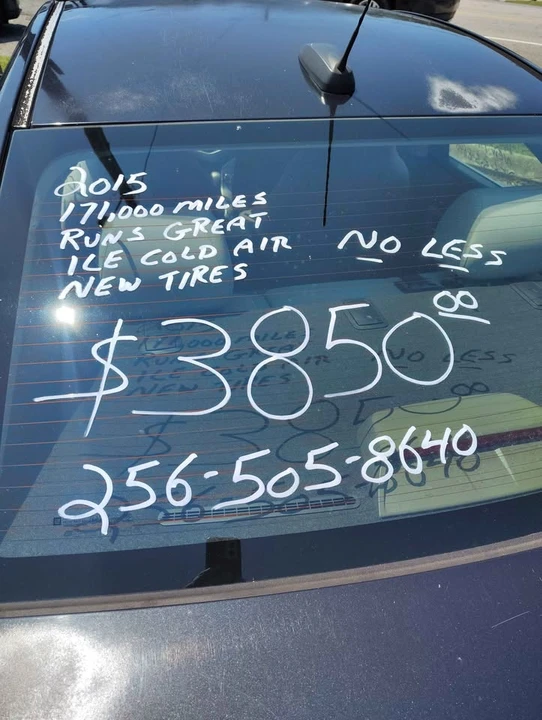 2015
171,000 MILES
RUNS GREAT
ICE COLD AIR
NEW TIRES
NO LESS
$3850 00
256-505-8640